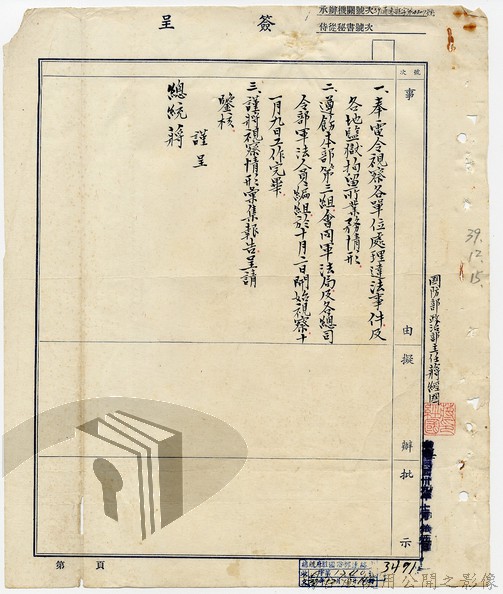 簽呈
承辦機關號次
侍從秘書號次
號次
事由
擬辦
批示
一、奉 電令視察各單位處理違法事件及
各地監獄拘留所業務情形
二、遵飭本部第三組會同軍法局及各總司
令部軍法人員編組於十月二日開始視察十
一月九日工作完畢
三、謹將視察情形彙集報告呈請
鑒核
謹呈
總統蔣
國防部政治部主任蔣經國
39.12.15.
第 頁
3491
使用公開之影像